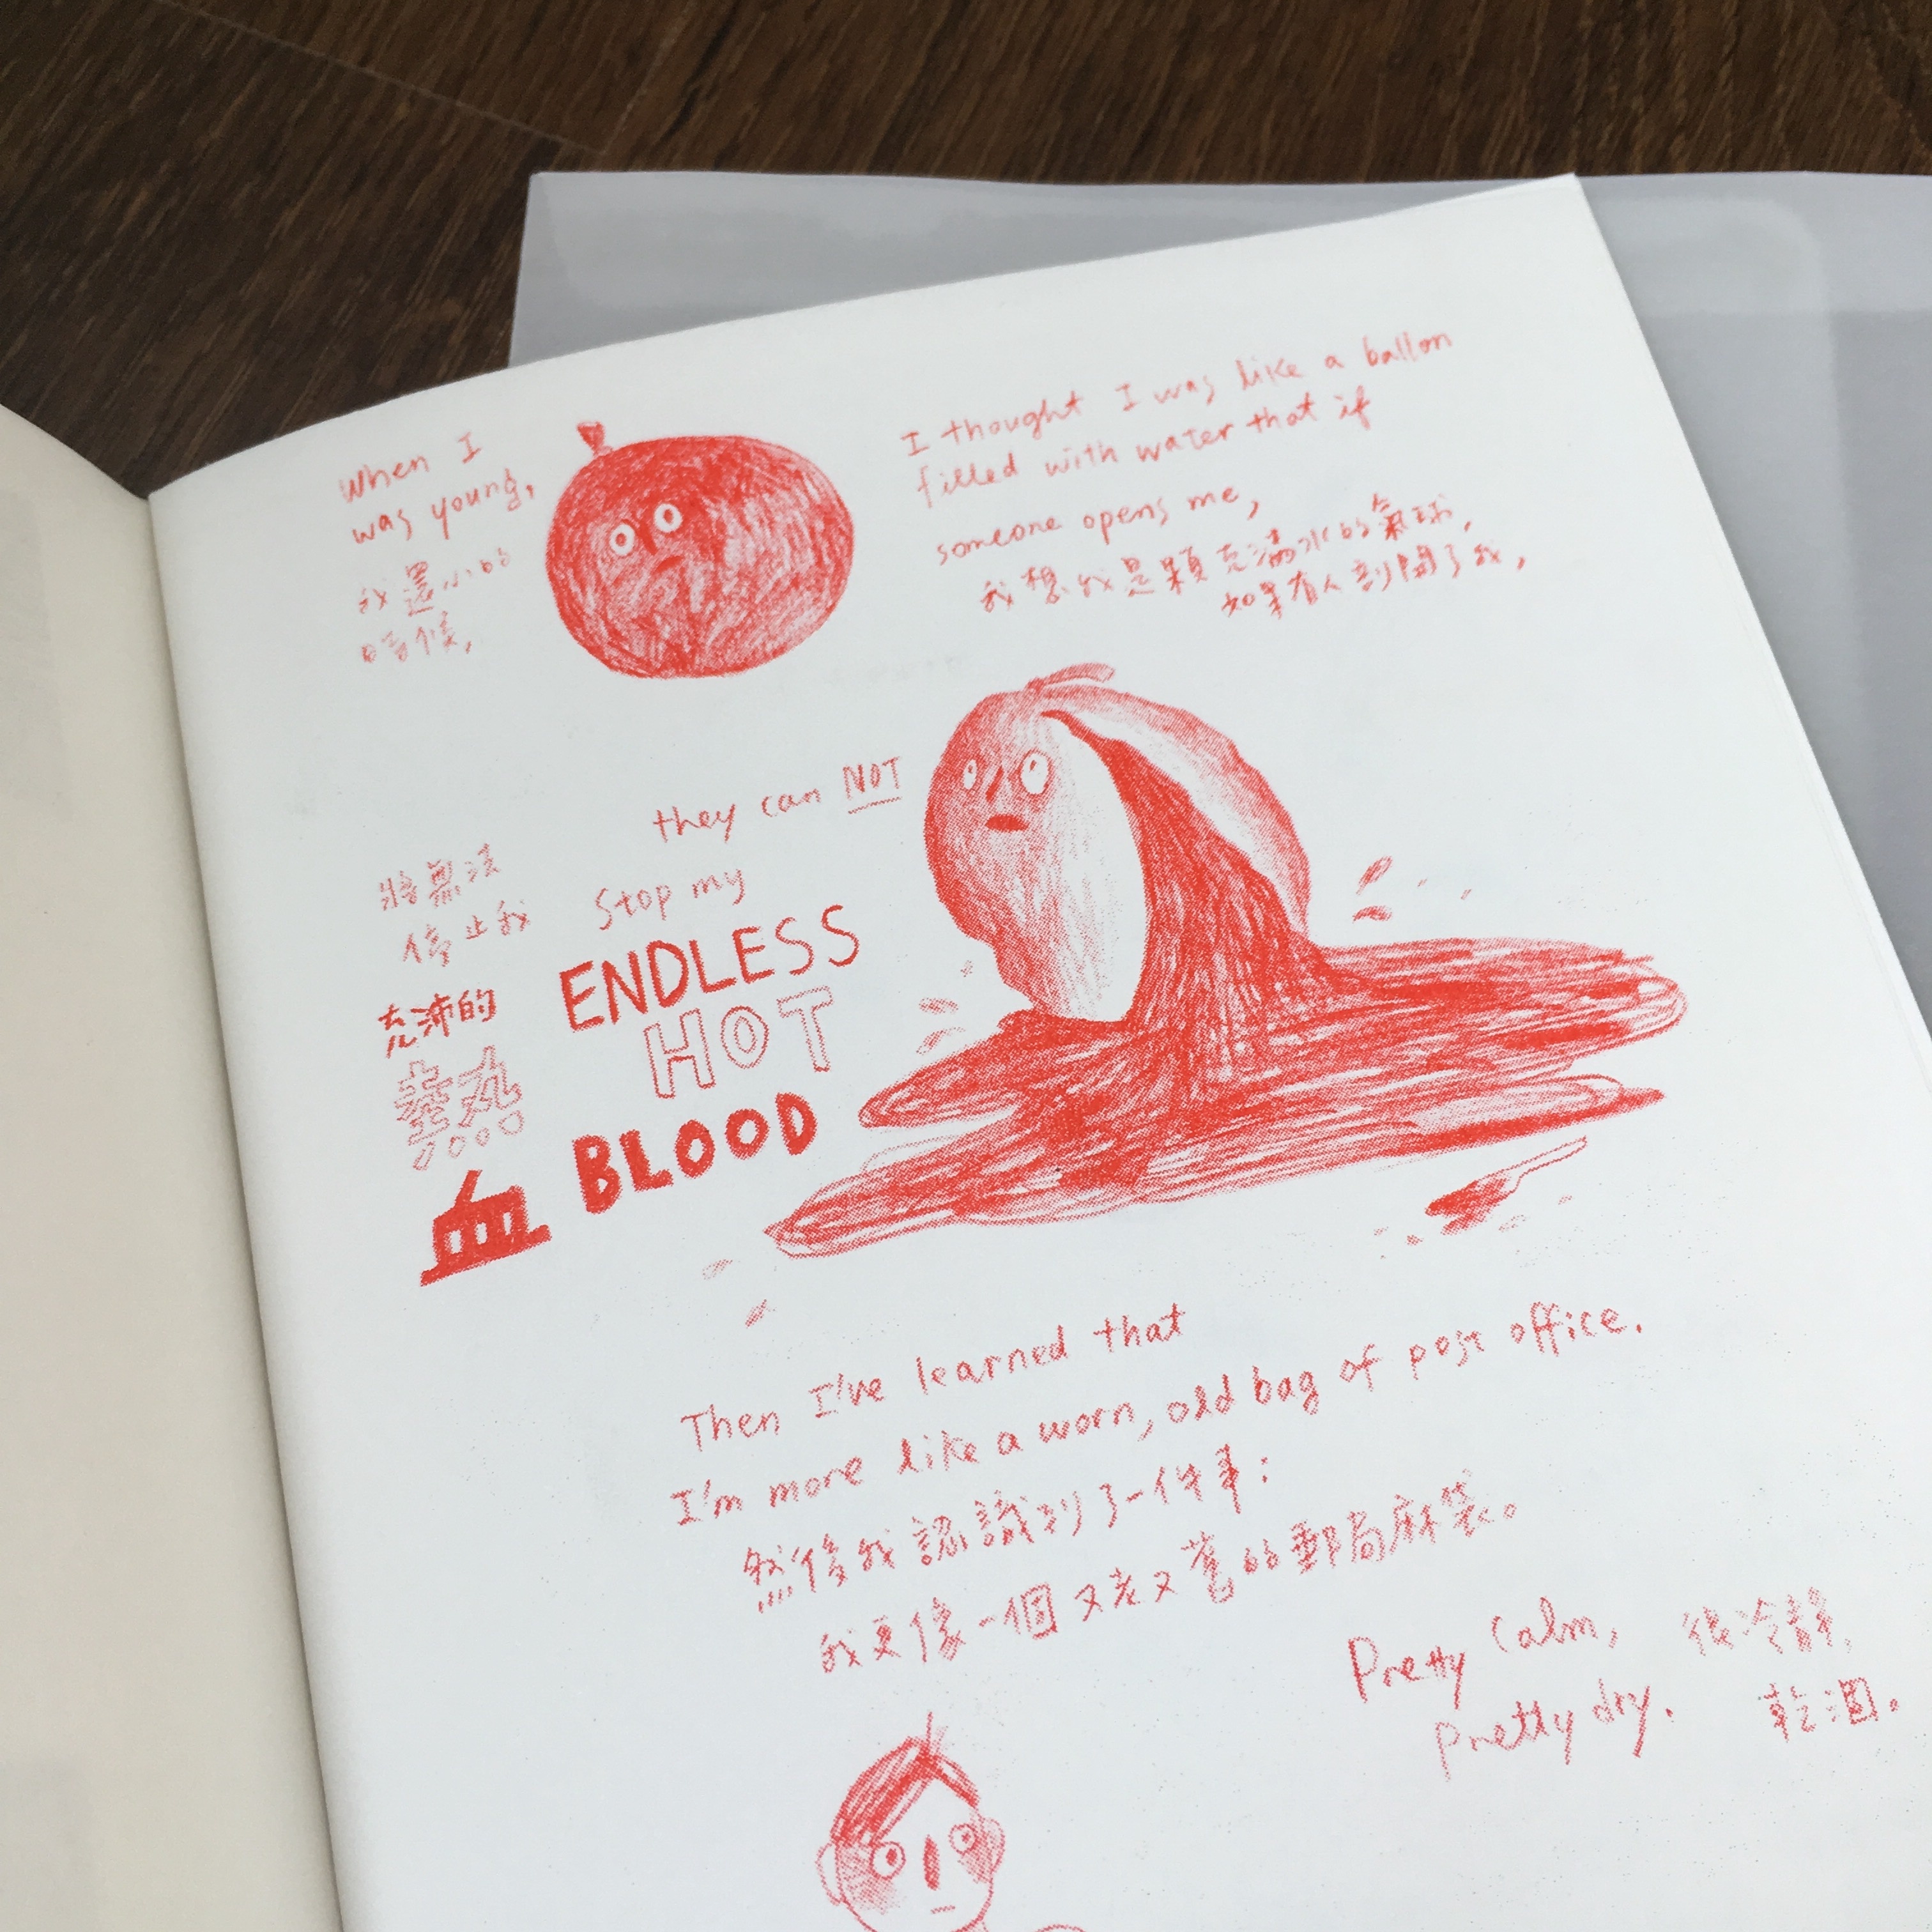 When I
was young,
我還小的
時候,
I thought I was like a ballon
filled with water that if
someone opens me,
我想我是顆充滿水的氣球,
如果有人剖開了我,
they can NOT
stop my
ENDLESS
HOT
BLOOD
將無法
停止我
充沛的
熱
血
Then I've learned that
I'm more like a worn, old bag of post office.
然後我認識到了一件事:
我更像一個又老又舊的郵局麻袋。
Pretty calm,
很冷靜,
Pretty dry.
乾涸。